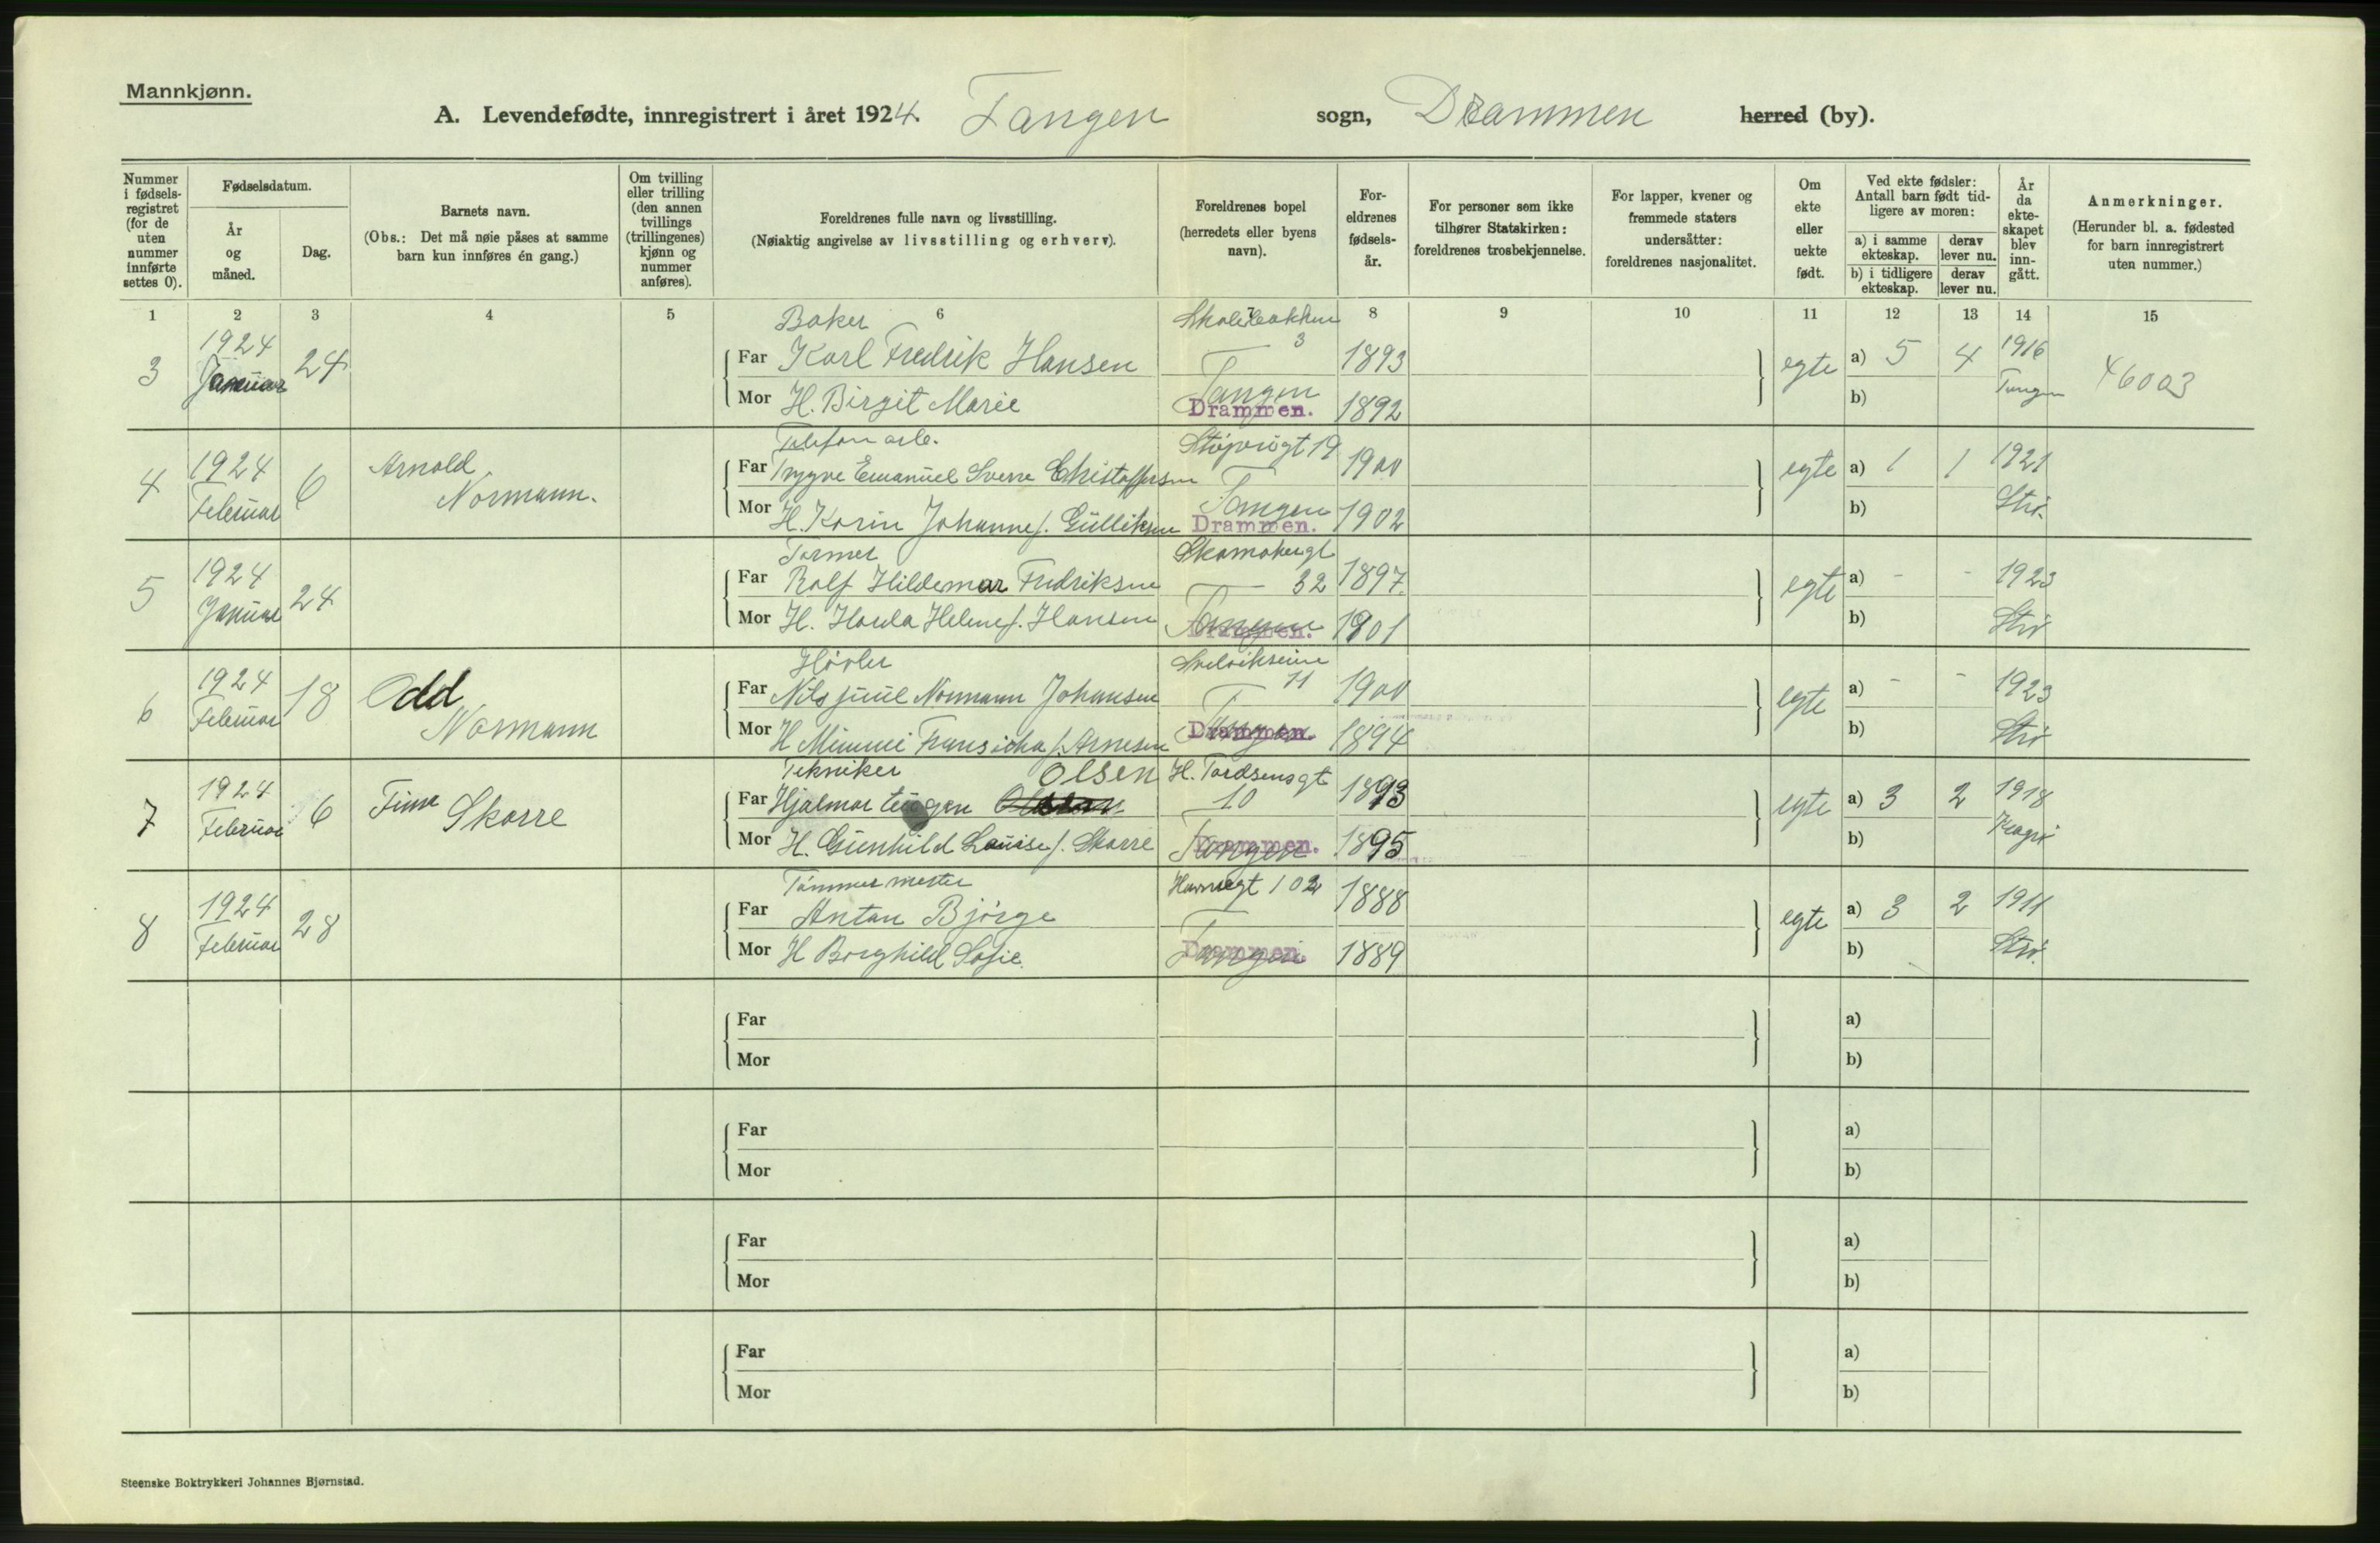 Mannkjønn.
A. Levendefødte, innregistrert i året 1924. Tangen sogn, Drammen herred (by).
Nummer i fødsels-registret (for de uten nummer innførte settes 0).
Fødselsdatum.
År og måned.
Dag.
Barnets navn.
(Obs.: Det må nøie påses at samme barn kun innføres én gang.)
Om tvilling eller trilling (den annen tvillings (trillingenes) kjønn og nummer anføres).
Foreldrenes fulle navn og livsstilling.
(Nøiaktig angivelse av livsstilling og erhverv).
Foreldrenes bopel (herredets eller byens navn).
For-eldrenes fødsels-år.
For personer som ikke tilhører Statskirken: foreldrenes trosbekjennelse.
For lapper, kvener og fremmede staters undersåtter: foreldrenes nasjonalitet.
Om ekte eller uekte født.
Ved ekte fødsler: Antall barn født tid-ligere av moren:
a) i samme ekteskap.
derav lever nu.
b) i tidligere ekteskap.
derav lever nu.
År da ekte-skapet blev inn-gått.
Anmerkninger.
(Herunder bl. a. fødested for barn innregistrert uten nummer.)
1 2 3 4 5 6 7 8 9 10 11 12 13 14 15
Baker
3 1924 Januar 24 Far Karl Fredrik Hansen 3 1893 egte a) 5 4 1916
Mor H. Birgit Marie Tangen Drammen. 1892 b) Tangen 46003
Telefon arb.
4 1924 Februar 6 Arnold Normann. Far Trygve Emanuel Sverre Christoffersen 19 1900 egte a) 1 1 1921
Mor H. Karin Johanne f. Gulliksen Tangen Drammen. 1902 b) Strø.
Former
5 1924 Januar 24 Far Rolf Hildemar Fredriksen 32 1897. egte a) - - 1923
Mor H. Helene f. Hansen Tangen Drammen. 1901 b) Strø
Høvler
6 1924 Februar 18 Odd Normann Far Nils Juul Normann Johansen 11 1900 egte a) - - 1923
Mor H Mimmi f. Arnesen Tangen Drammen. 1894 b) Strø
Tekniker Olsen H. Tordsensgt
7 1924 Februar 6 Skarre Far Hjalmar 10 1893 egte a) 3 2 1918
Mor H. Gunhild Louise f. Skarre Tangen Drammen. 1895 b)
Tømmermester Havnegt 102
8 1924 Februar 28 Far Anton Bjørge 1888 egte a) 3 2 1911
Mor H Borghild Sofie. Tangen Drammen. 1889 b) Strø.
Far a)
Mor b)
Far a)
Mor b)
Far a)
Mor b)
Far a)
Mor b)
Steenske Boktrykkeri Johannes Bjørnstad.